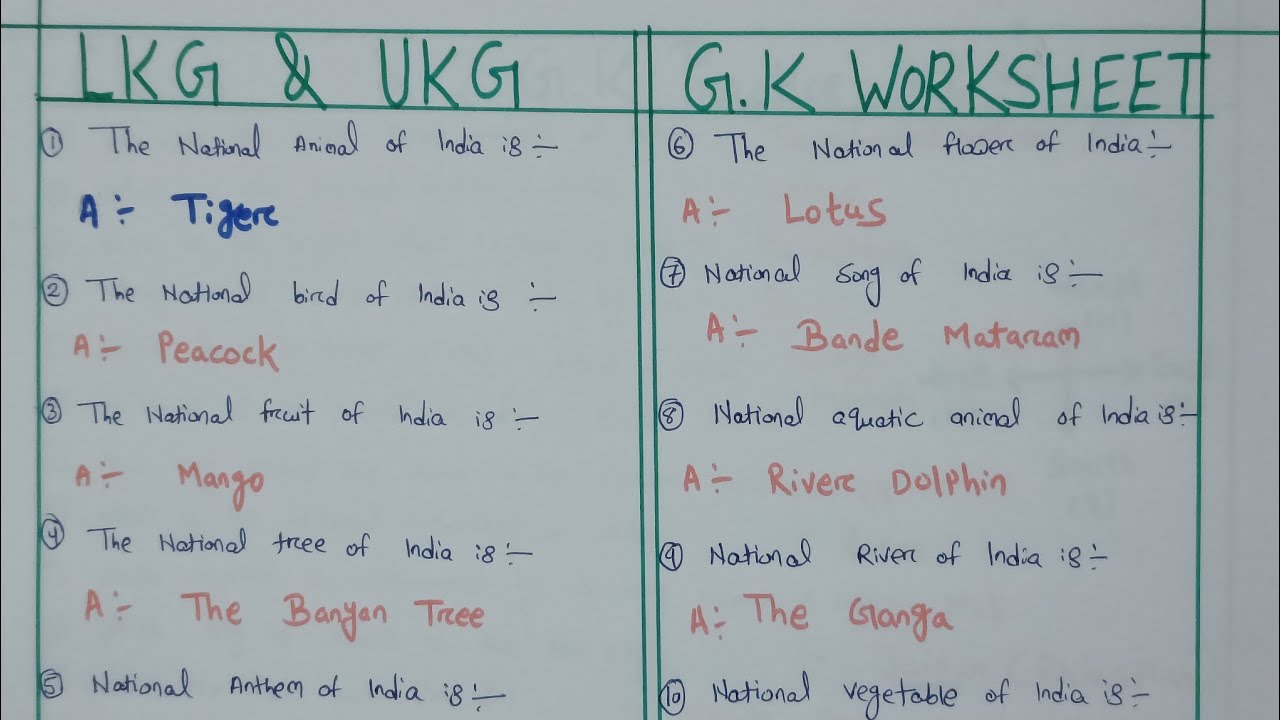 LKG & UKG
① The National Animal of India is :-
A :- Tiger
② The National bird of India is :-
A :- Peacock
③ The National fruit of India is :-
A :- Mango
④ The National tree of India is :-
A :- The Banyan Tree
⑤ National Anthem of India is :-
G.K WORKSHEET
⑥ The National flower of India :-
A :- Lotus
⑦ National Song of India is :-
A :- Bande Mataram
⑧ National aquatic animal of India is :-
A :- River Dolphin
⑨ National River of India is :-
A :- The Ganga
⑩ National vegetable of India is :-